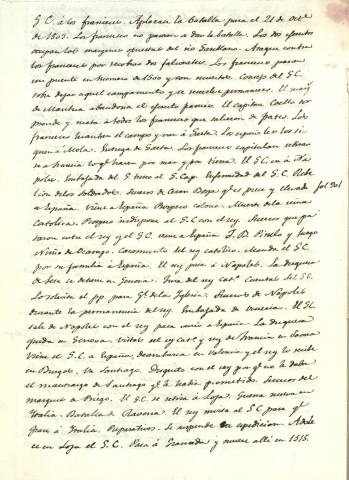 G.C. á los franceses. Aplazan la batalla para el 21 de Octe
de 1503. Los franceses no pasan a dar la batalla. Los dos ejercitos
ocupan las margenes opuestas del rio Garellano. Ataque contra
los franceses por recobrar dos falconetes. Los franceses pasan
un puente en numero de 1500 y son muertos. Consejo del G.C.
sobre dejar aquel campamento y se resuelve permanecer. El marqs
de Mantua abandona el ejercito frances. El capitan Coello sor
prende y mata a todos los franceses que salieron de frates. Los
franceses levantan el campo y van á Gaeta. Los españoles los si
guen a Mola. Entrega de Gaeta. Los franceses capitulan retirar
se a francia los qe hacen por mar y por tierra. El G.C. va á Ná
poles. Embajada del P. turco al G. Cap. Enfermedad del G.C. Rebe
lion de los soldados. Sucesos de Cesar Borja qe es preso y llevado
a España. Viene a España Prospero Colona. Muerte de la reina
Catolica. Prospero indispone al G.C. con el rey. Sucesos que pa
saron entre el rey y el G.C. viene a España J. B. Pinelo y luego
Nuño de Ocampo. Casamiento del rey catolico. Manda el G.C.
por su familia á España. El rey pasa á Napoles. La duquesa
de Sesa se detiene en Genova. Jura del rey cat.º Consulta del G.C.
Lo solicita el pp. para Gl. de la Iglesia. Sucesos de Napoles
durante la permanencia del rey. Embajada de Venecia. El G.C.
sale de Napoles con el rey para venir a España. La duquesa
queda en Genova. Vistas del rey cat.º y rey de Francia en Saona
Viene el G.C. a España, desembarca en Valencia y el rey lo recibe
en Burgos. Va Santiago. Disgusto con el rey por qe no le daba
el maestrazgo de Santiago qe le habia prometido. Sucesos del
marques de Priego. El G.C. se retira á Loja. Guerra nueva en
Italia. Batalla de Ravena. El rey invita al G.C. para qe
pase á Italia. Preparativos. Se suspende la expedicion. Adole
ce en Loja el G.C. Pasa á Granada y muere alli en 1515.